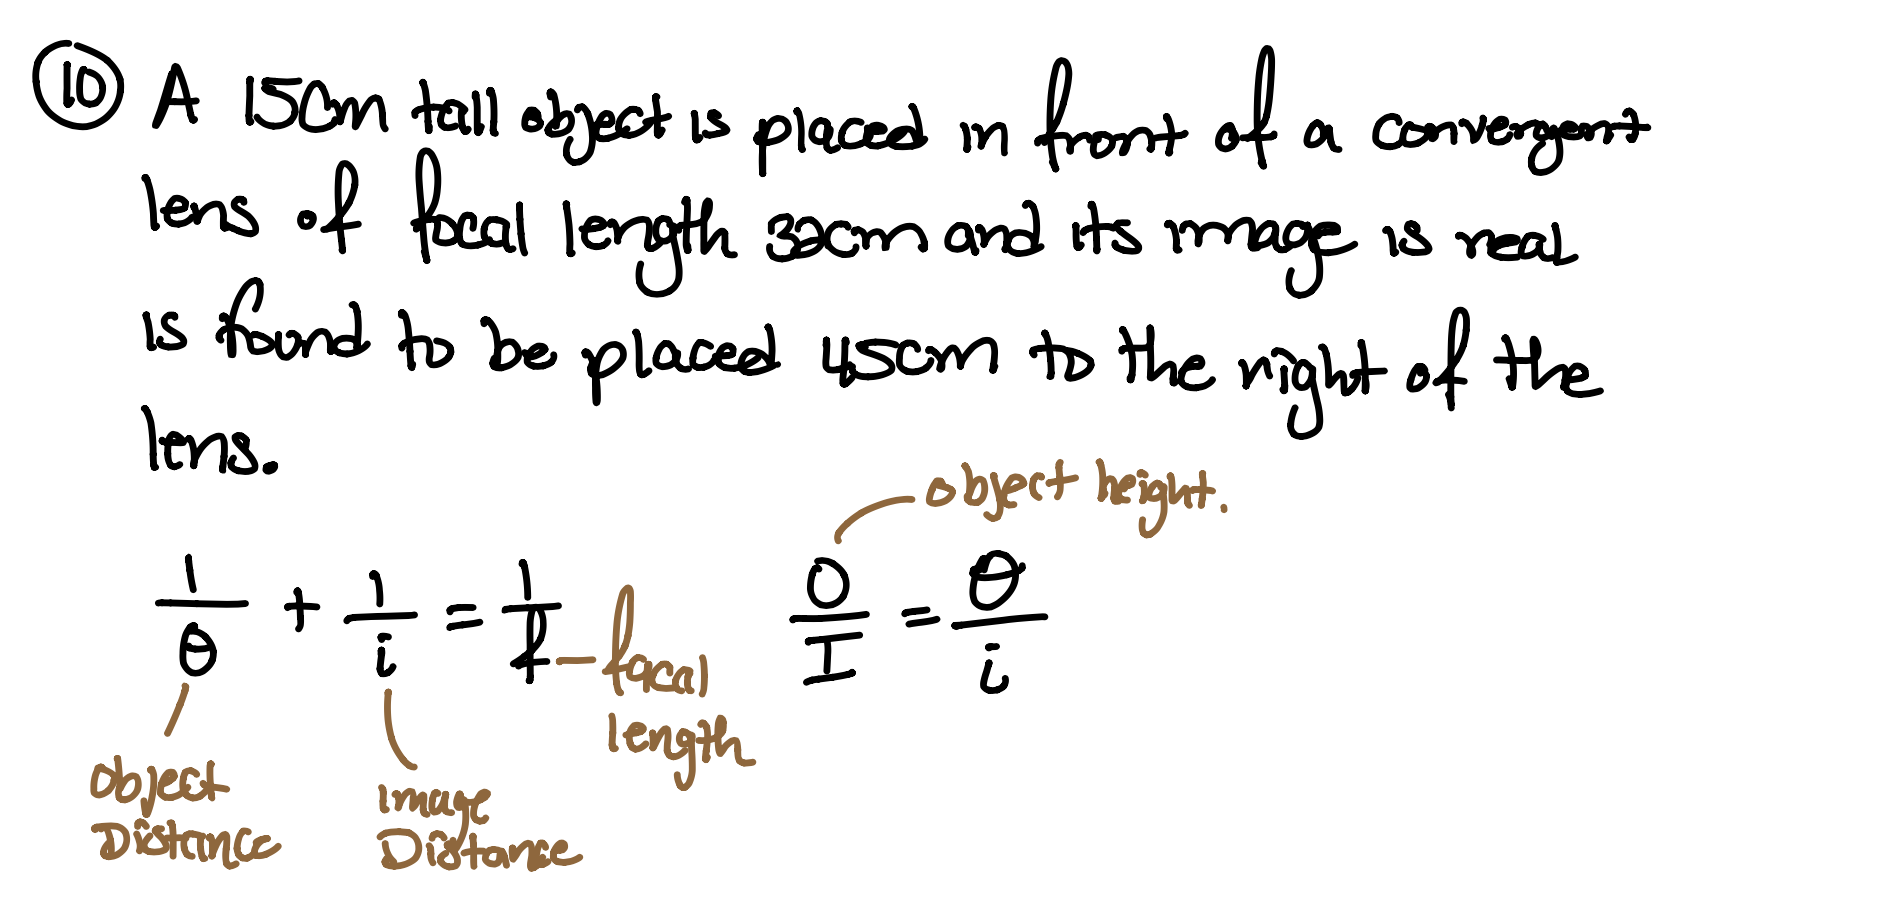 10 A 15cm tall object is placed in front of a convergent
lens of focal length 32cm and its image is real
is found to be placed 45cm to the right of the
lens.
object height.
1/θ + 1/i = 1/f – focal length
O/I = θ/i
object Distance
image Distance